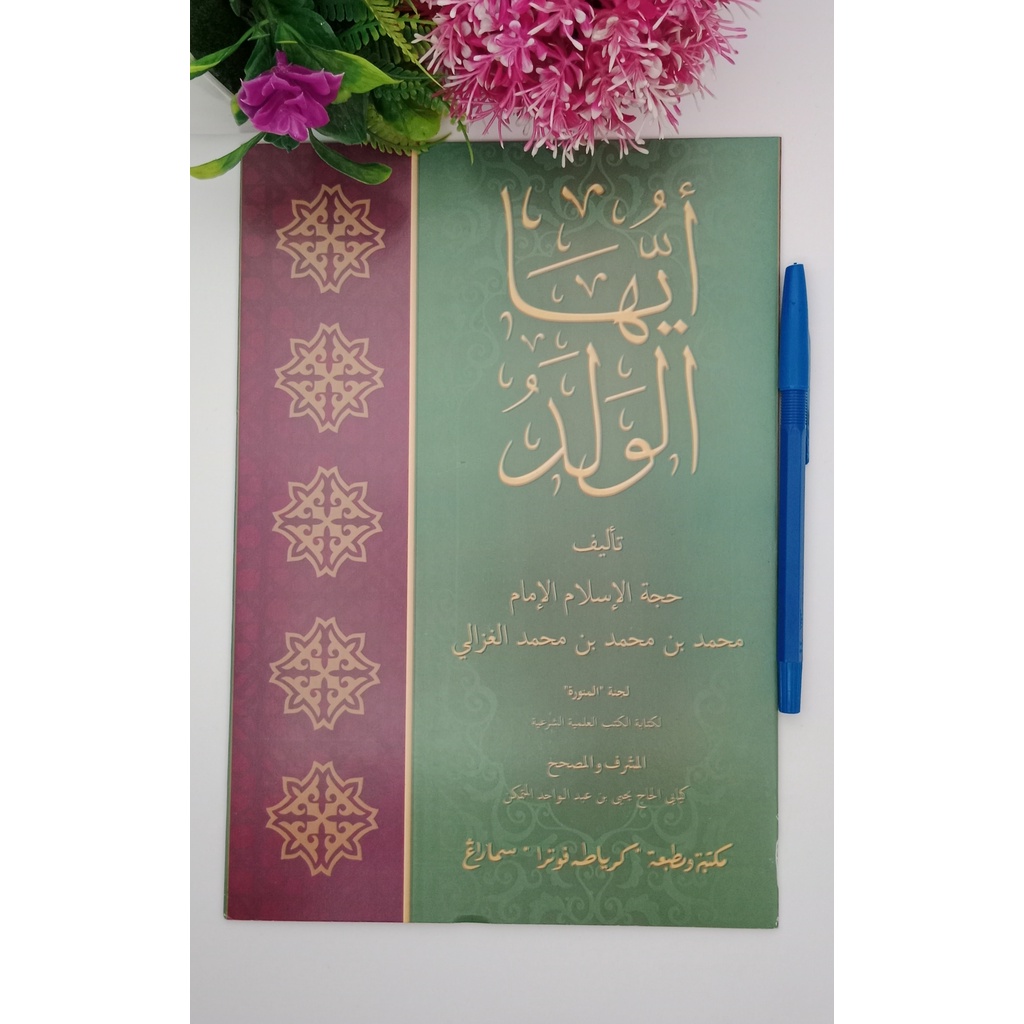 أيُّهَا
الوَلَدُ
تأليف
حجة الإسلام الإمام
محمد بن محمد بن محمد الغزالي
لجنة "المنورة"
لكتابة الكتب العلمية الشرعية
المشرف والمصحح
كياهي الحاج يحيى بن عبد الواحد المتمكن
مكتبة ومطبعة "كرياطه فوترا" سماراڠ